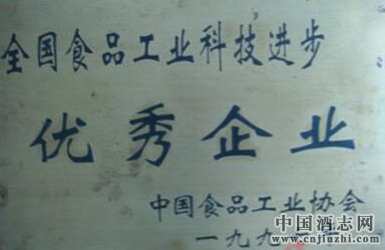 全国食品工业科技进步
优秀企业
中国食品工业协会
一九九
中国酒志网
www.cnjiuzhi.cn